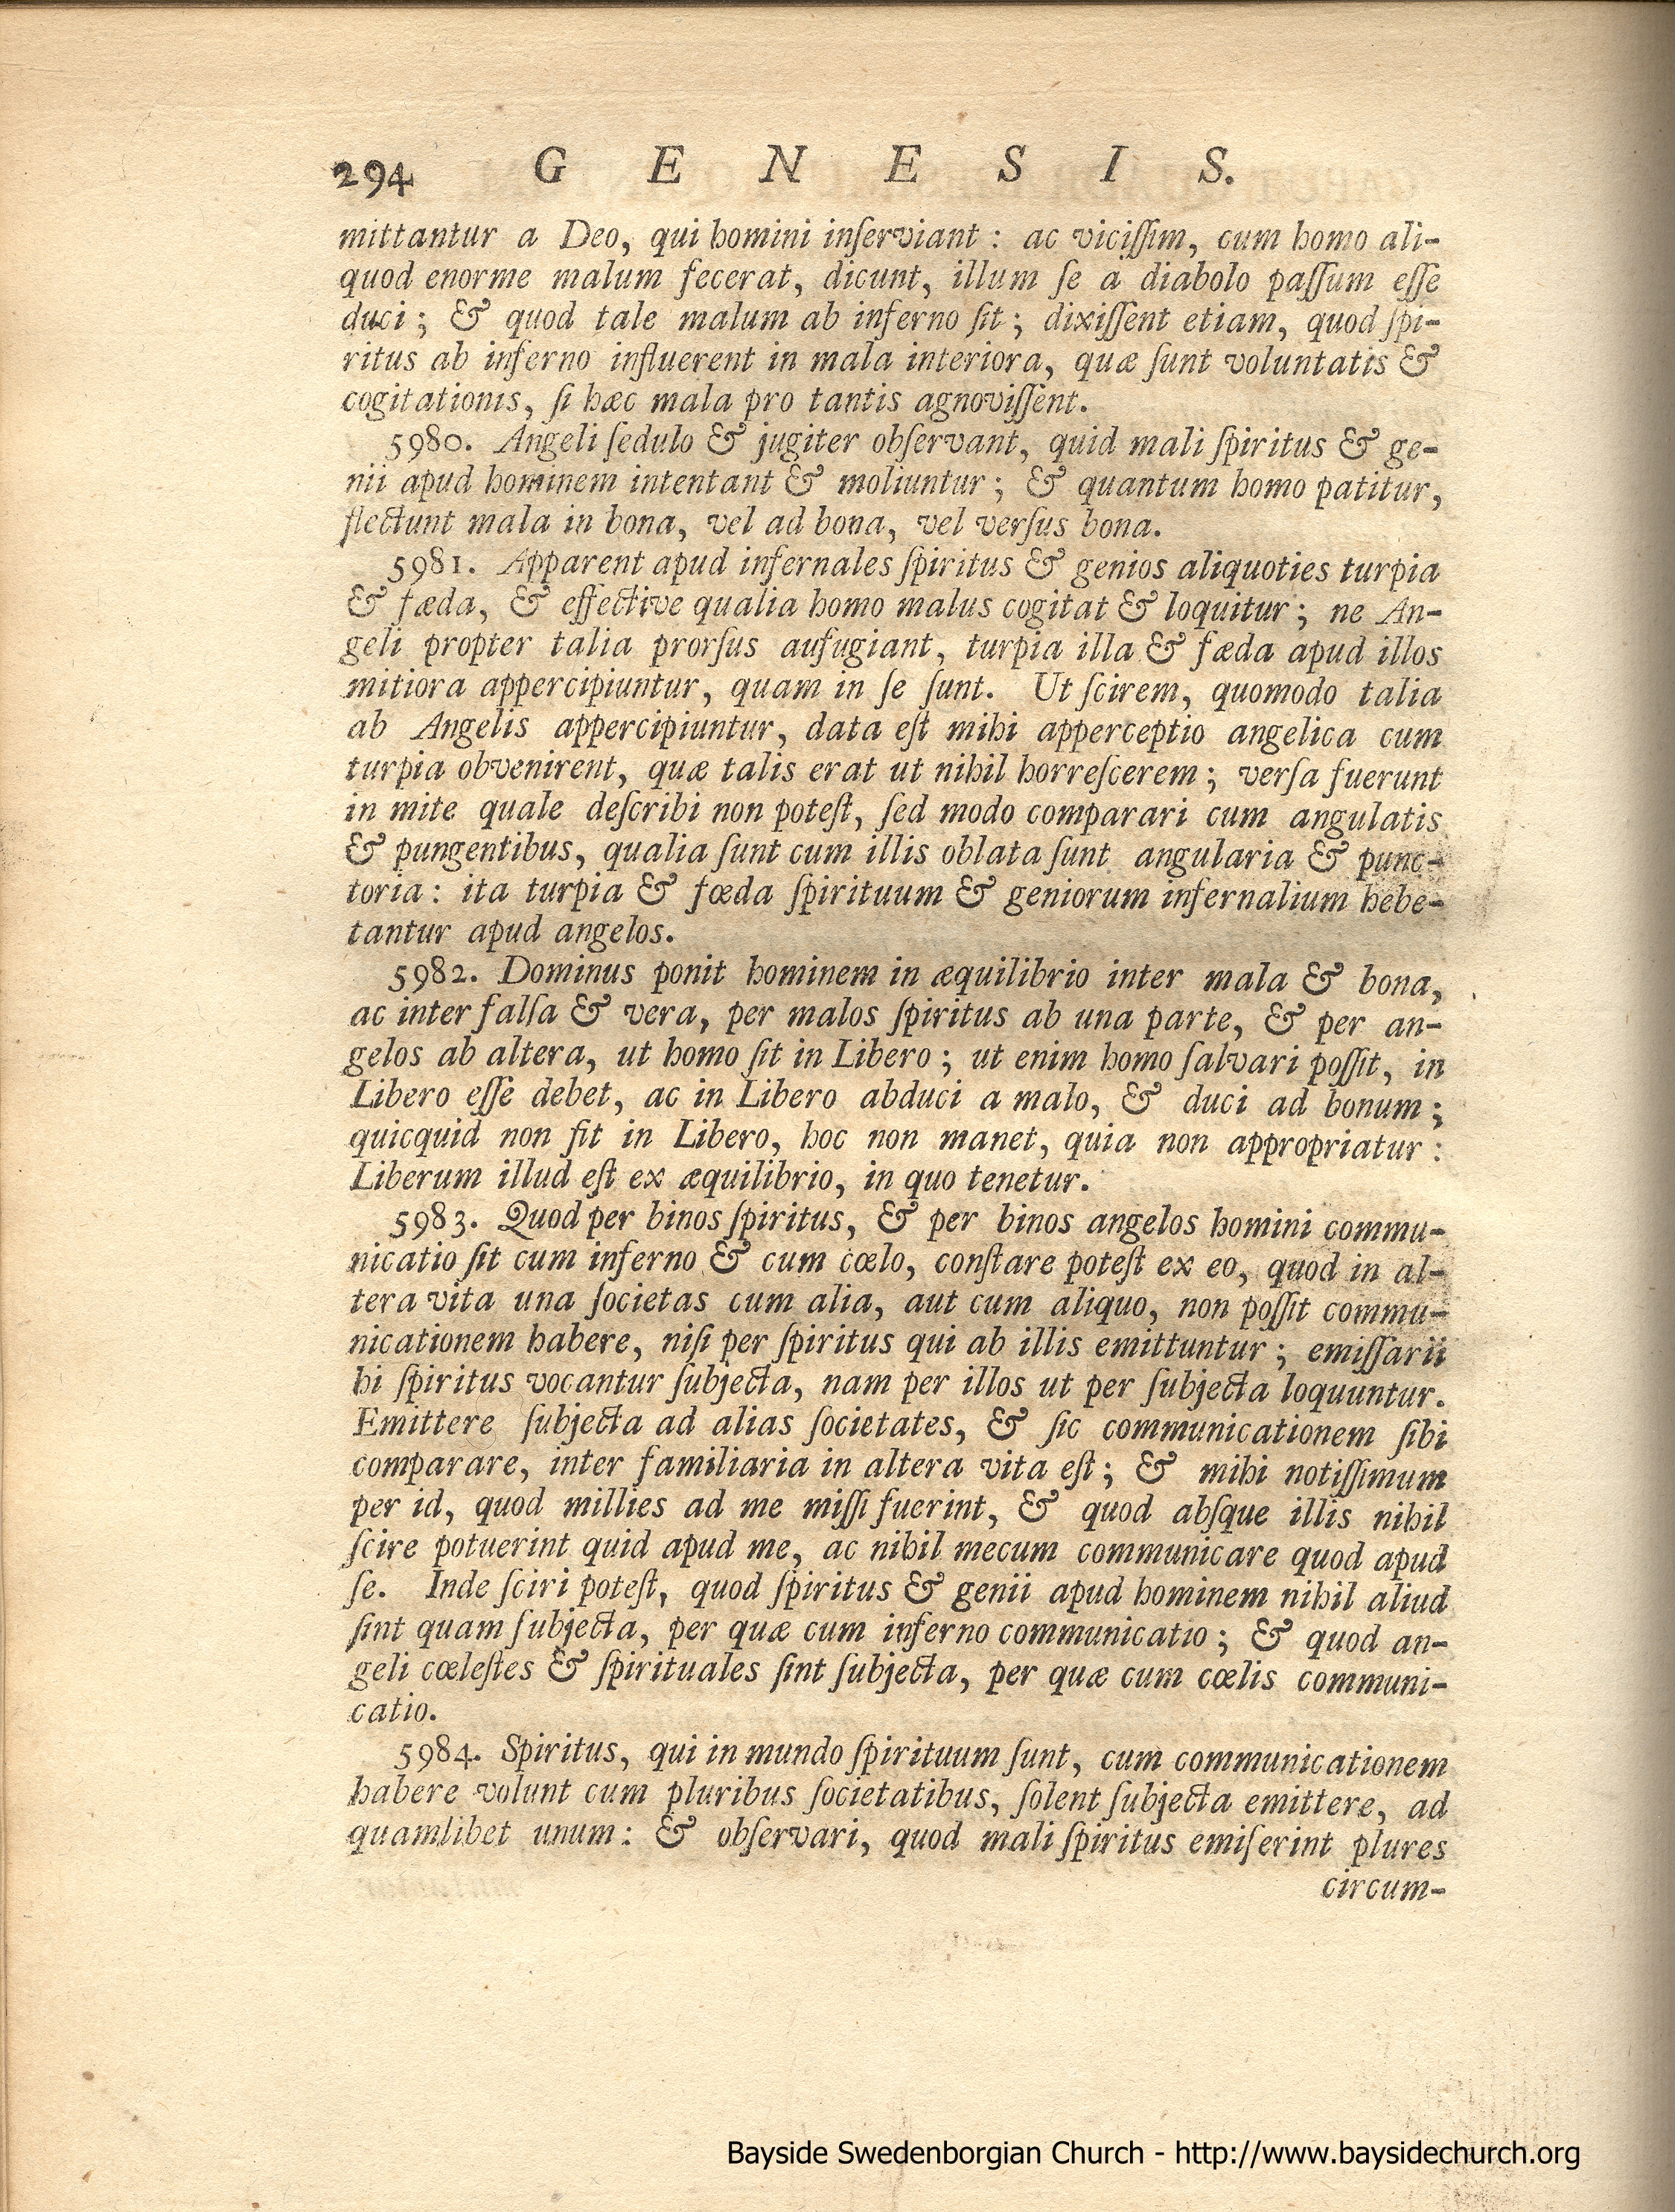 294 G E N E S I S.
mittantur a Deo, qui homini inſerviant : ac viciſſim, cum homo ali-
quod enorme malum fecerat, dicunt, illum ſe a diabolo paſſum eſſe
duci ; & quod tale malum ab inferno ſit ; dixiſſent etiam, quod ſpi-
ritus ab inferno influerent in mala interiora, quæ ſunt voluntatis &
cogitationis, ſi hæc mala pro tantis agnoviſſent.
5980. Angeli ſedulo & jugiter obſervant, quid mali ſpiritus & ge-
nii apud hominem intentant & moliuntur ; & quantum homo patitur,
flectunt mala in bona, vel ad bona, vel verſus bona.
5981. Apparent apud infernales ſpiritus & genios aliquoties turpia
& fæda, & effective qualia homo malus cogitat & loquitur ; ne An-
geli propter talia prorſus aufugiant, turpia illa & fæda apud illos
mitiora appercipiuntur, quam in ſe ſunt. Ut ſcirem, quomodo talia
ab Angelis appercipiuntur, data eſt mihi apperceptio angelica cum
turpia obvenirent, quæ talis erat ut nihil horreſcerem ; verſa fuerunt
in mite quale deſcribi non poteſt, ſed modo comparari cum angulatis
& pungentibus, qualia ſunt cum illis oblata ſunt angularia & punc-
toria : ita turpia & fœda ſpirituum & geniorum infernalium hebe-
tantur apud angelos.
5982. Dominus ponit hominem in æquilibrio inter mala & bona,
ac inter falſa & vera, per malos ſpiritus ab una parte, & per an-
gelos ab altera, ut homo ſit in Libero ; ut enim homo ſalvari poſſit, in
Libero eſſe debet, ac in Libero abduci a malo, & duci ad bonum ;
quicquid non fit in Libero, hoc non manet, quia non appropriatur :
Liberum illud eſt ex æquilibrio, in quo tenetur.
5983. Quod per binos ſpiritus, & per binos angelos homini commu-
nicatio ſit cum inferno & cum cœlo, conſtare poteſt ex eo, quod in al-
tera vita una ſocietas cum alia, aut cum aliquo, non poſſit commu-
nicationem habere, niſi per ſpiritus qui ab illis emittuntur ; emiſſarii
hi ſpiritus vocantur ſubjecta, nam per illos ut per ſubjecta loquuntur.
Emittere ſubjecta ad alias ſocietates, & ſic communicationem ſibi
comparare, inter familiaria in altera vita eſt ; & mihi notiſſimum
per id, quod millies ad me miſſi fuerint, & quod abſque illis nihil
ſcire potuerint quid apud me, ac nihil mecum communicare quod apud
ſe. Inde ſciri poteſt, quod ſpiritus & genii apud hominem nihil aliud
ſint quam ſubjecta, per quæ cum inferno communicatio ; & quod an-
geli cœleſtes & ſpirituales ſint ſubjecta, per quæ cum cœlis communi-
catio.
5984. Spiritus, qui in mundo ſpirituum ſunt, cum communicationem
habere volunt cum pluribus ſocietatibus, ſolent ſubjecta emittere, ad
quamlibet unum : & obſervari, quod mali ſpiritus emiſerint plures
circum-
Bayside Swedenborgian Church - http://www.baysidechurch.org